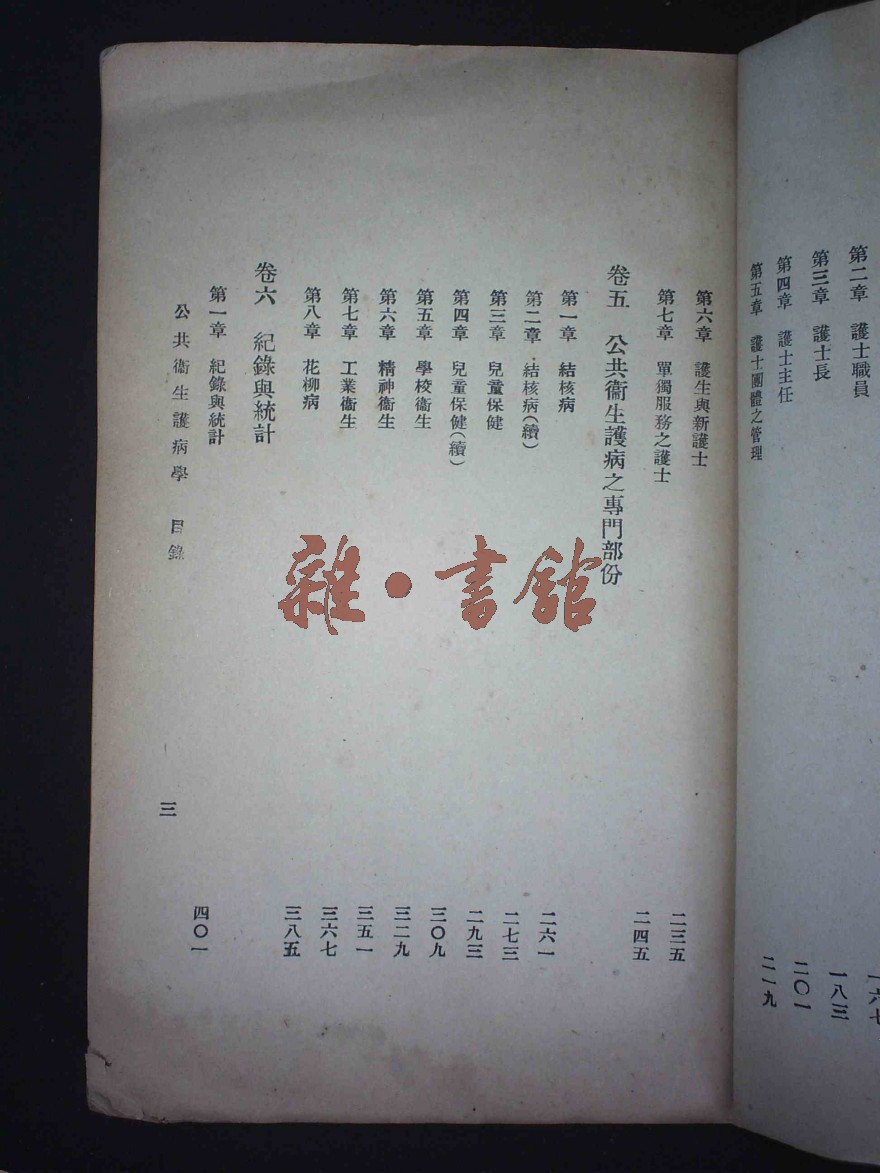 第二章 護士職員 一六七
第三章 護士長 一八三
第四章 護士主任 二〇一
第五章 護士團體之管理 二一九
第六章 護生與新護士 二三五
第七章 單獨服務之護士 二四五
卷五 公共衞生護病之專門部份
第一章 結核病 二六一
第二章 結核病(續) 二七三
第三章 兒童保健 二九三
第四章 兒童保健(續) 三〇九
第五章 學校衞生 三二九
第六章 精神衞生 三五一
第七章 工業衞生 三六七
第八章 花柳病 三八五
卷六 紀錄與統計
第一章 紀錄與統計 四〇一
公共衞生護病學 目錄 三
雜·書館